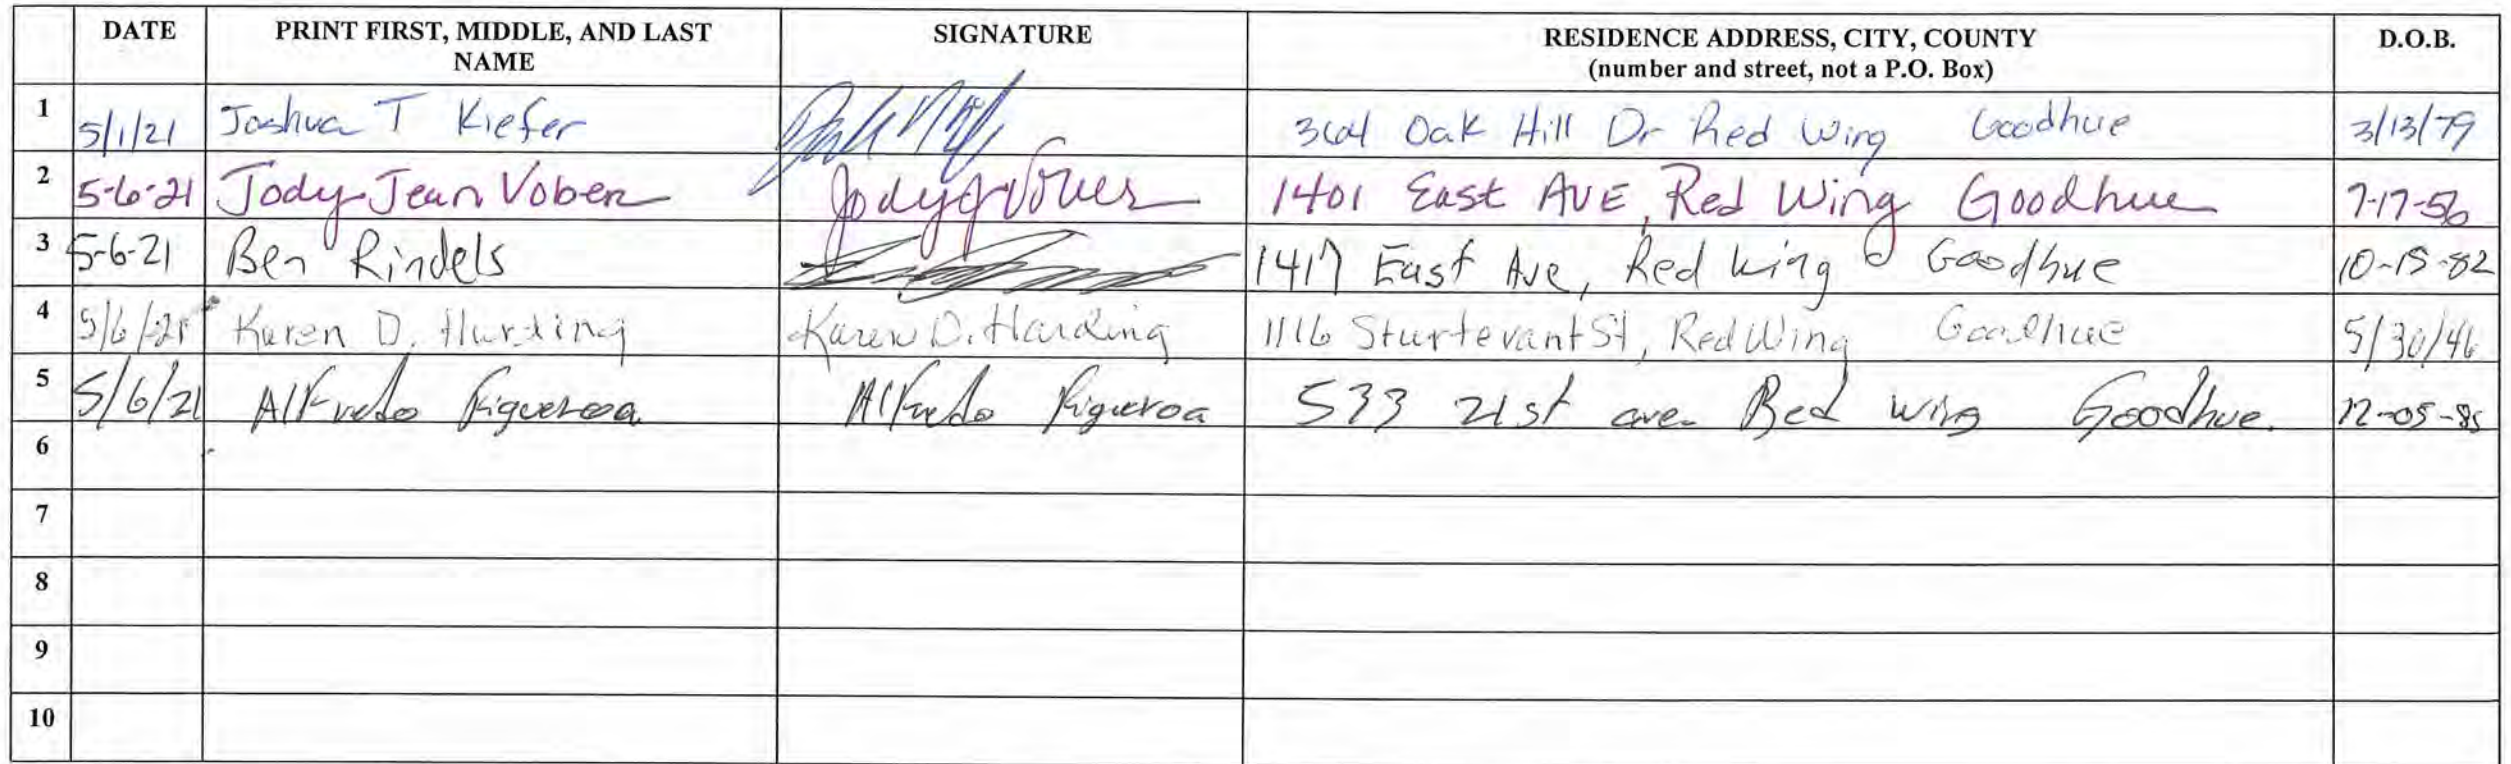 DATE PRINT FIRST, MIDDLE, AND LAST NAME SIGNATURE RESIDENCE ADDRESS, CITY, COUNTY (number and street, not a P.O. Box) D.O.B.
1 5/1/21 Joshua T Kiefer Oak Hill Dr Red Wing Goodhue 3/13/79
2 5-6-21 Jody Jean Jody J 1401 East AVE, Red Wing Goodhue 7-17-56
3 5-6-21 Ben Rindels 1417 East Ave, Red Wing Goodhue 10-15-82
4 5/6/21 Karen D. Harding Karen D. Harding 1116 Sturtevant St, Red Wing Goodhue 5/30/46
5 5/6/21 Alfredo Figueroa Alfredo Figueroa 533 21st ave. Red wing Goodhue. 12-05-85
6
7
8
9
10